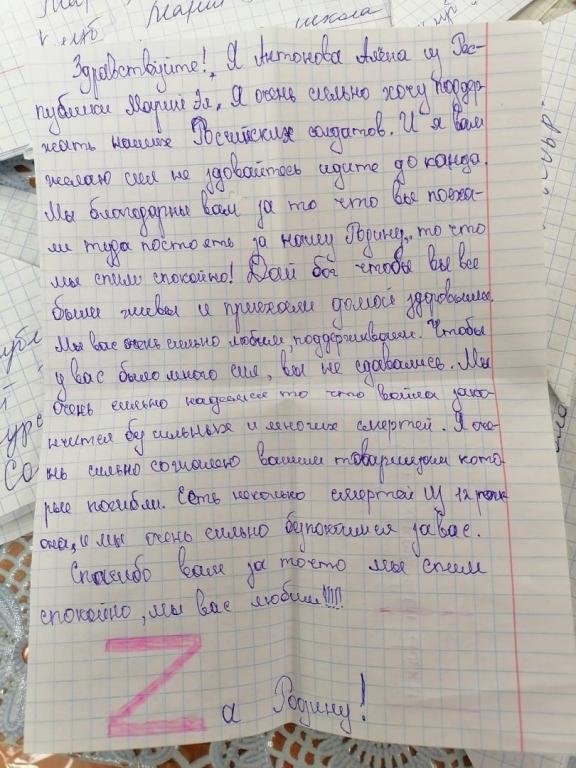 Марий
школа
Здравствуйте!, Я Антонова Алёна из Рес-
публики Марий Эл, Я очень сильно хочу поддер-
жать наших Российских солдатов. И я вам
желаю сил не здовайтесь идите до канца.
Мы благодарны вам за то что вы поеха-
ли туда постоять за нашу Родину, то что
мы спим спокойно! Дай бог чтобы вы все
были живы и приехали домой здоровыми.
Мы вас очень сильно любим, поддерживаем. Чтобы
у вас было много сил, вы не сдавались. Мы
очень сильно надеемся то что война зако-
нчится без сильных и многих смертей. Я оче-
нь сильно сожалею вашим товарищам кото-
рые погибли. Есть несколько смертей из 12
и мы очень сильно безпокоимся за вас.
Спасибо вам за то что мы спим
спокойно, мы вас любим!!!!!
Z а Родину!